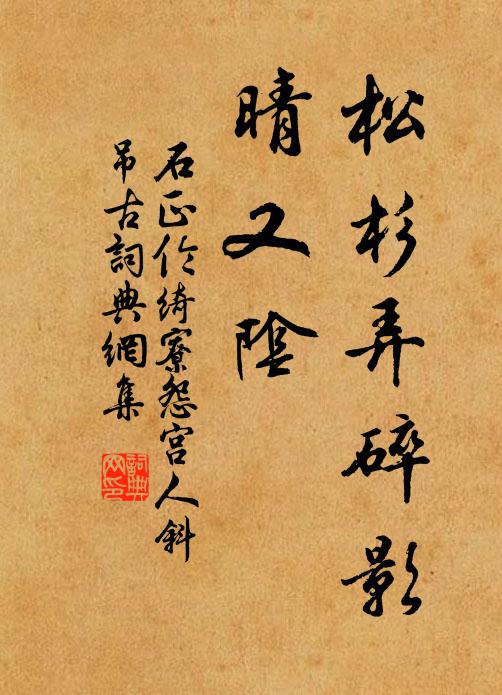 松杉弄碎影
晴又陰
石正倫綺寮怨宮人斜
吊古詞典網集
詞典
网印